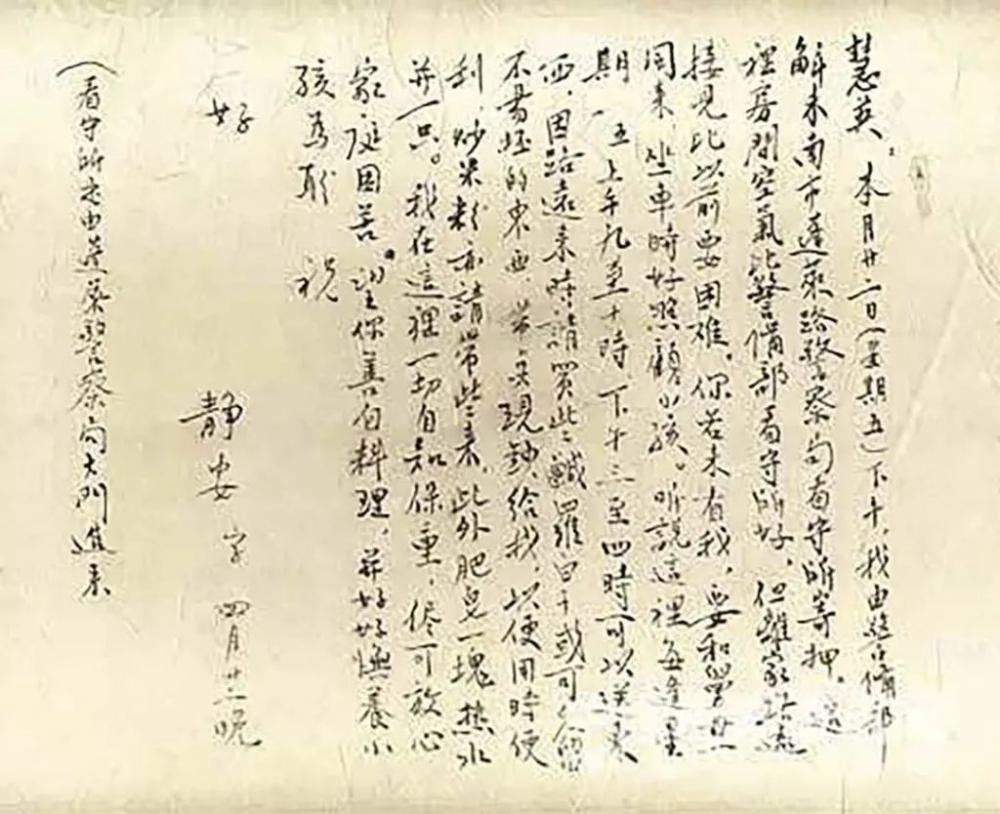 慧英：本月廿二日（星期五）下午，我由警備部
解來南市蓬萊路警察局看守所寄押。這
裡房間空氣比警備部看守所好，但離家路遠
接見比以前要困難。你若來有我，要和曼丗
同來，坐車時好照顧小孩。听說這裡每逢星
期一、五上午九至十時下午三至四時可以送東
西，因路遠來時請買些鹹羅白干或可久留
不易壞的東西，帶点現鈔給我，以便用時便
利，炒米粉亦請帶些來，此外肥皂一塊热水
并一只。我在這裡一切自知保重，侭可放心
家庭困苦。望你善自料理，并好好憮養小
孩為盼　祝
好
靜安字　四月廿二晚
（看守所是由蓬萊路警察局大門進來